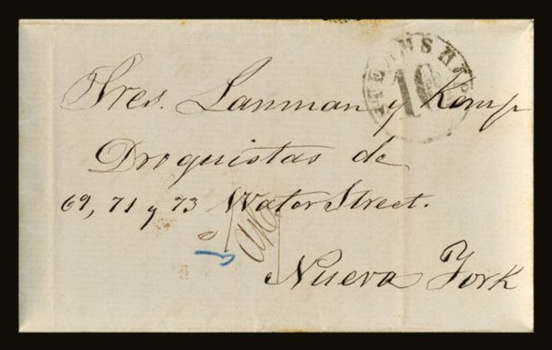 STEAMSHIP
10
Sres. Lanman y Kemp
Droguistas de
69, 71 y 73 Water Street.
Nueva York